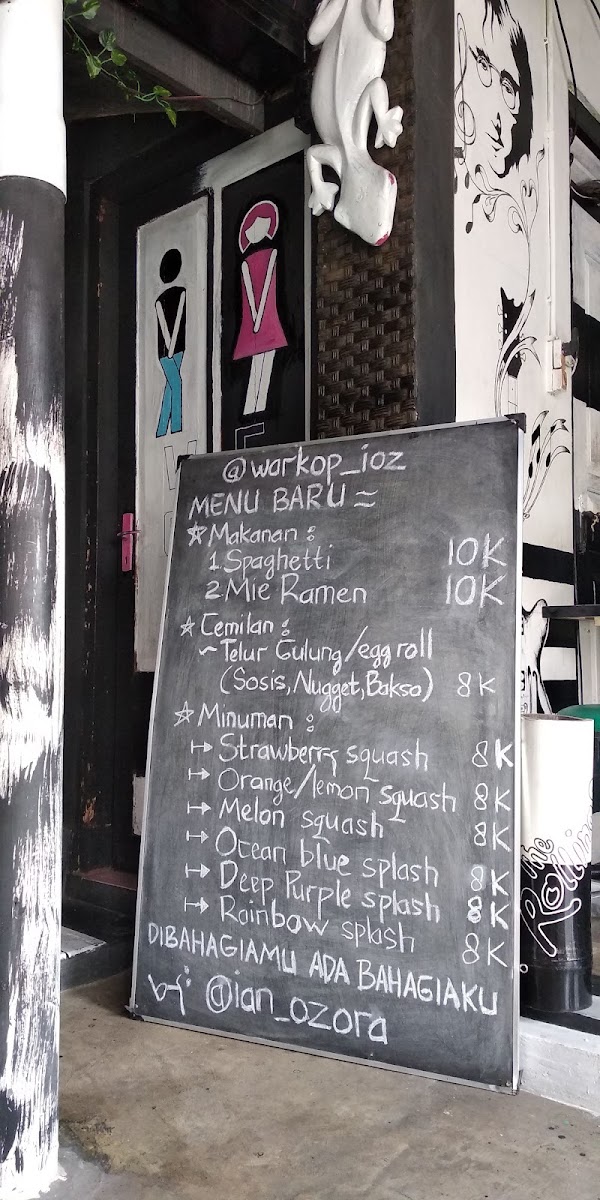 @warkop_ioz
MENU BARU
Makanan :
1. Spaghetti 10K
2. Mie Ramen 10K
Cemilan :
~ Telur Gulung/egg roll
(Sosis, Nugget, Bakso) 8K
Minuman :
Strawberry squash 8K
Orange/lemon squash 8K
Melon squash 8K
Ocean blue splash 8K
Deep Purple splash 8K
Rainbow splash 8K
DIBAHAGIAMU ADA BAHAGIAKU
by: @ian_ozora
The
Rollin